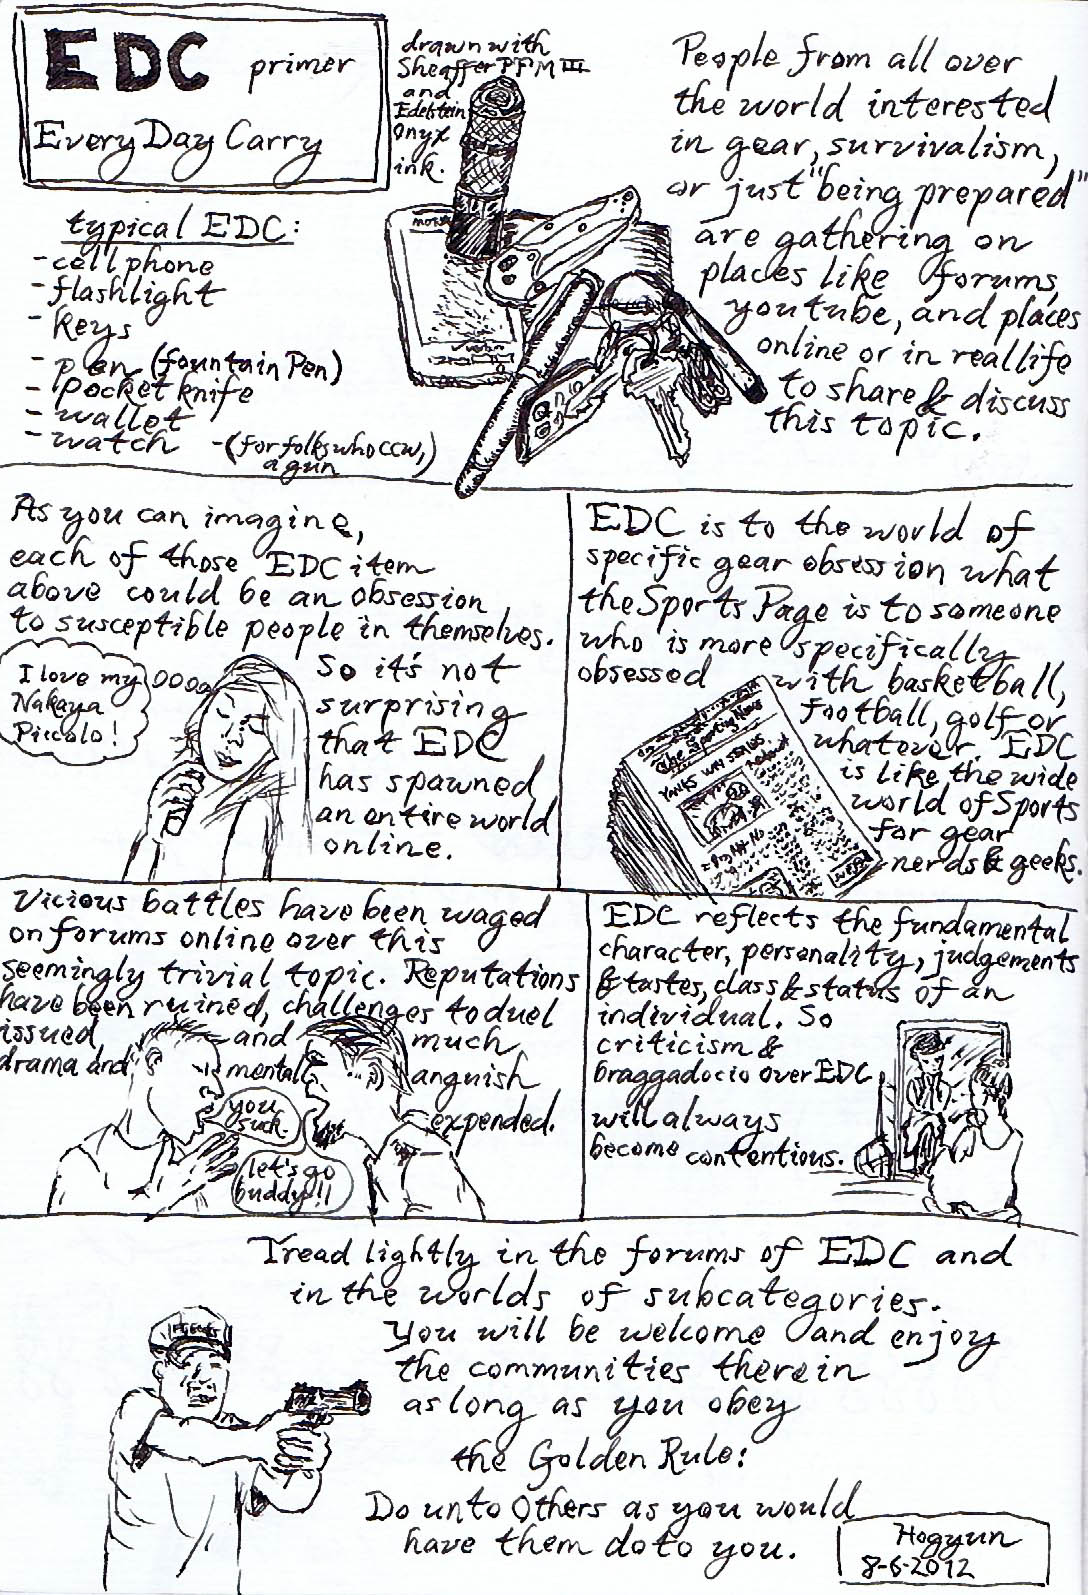 EDC primer
Every Day Carry
drawn with
Sheaffer PFM III
and
Edelstein
Onyx
ink.
typical EDC:
- cell phone
- flashlight
- keys
- pen (fountain Pen)
- pocket knife
- wallet
- watch - (for folks who ccw,
a gun)
People from all over
the world interested
in gear, survivalism,
or just "being prepared"
are gathering on
places like forums,
youtube, and places
online or in real life
to share & discuss
this topic.
As you can imagine,
each of those EDC item
above could be an obsession
to susceptible people in themselves.
So it's not
surprising
that EDC
has spawned
an entire world
online.
I love my
Nakaya
Piccolo!
EDC is to the world of
specific gear obsession what
the Sports Page is to someone
who is more specifically
obsessed with basketball,
football, golf or
whatever. EDC
is like the wide
world of Sports
for gear
nerds & geeks.
The Sporting News
Vicious battles have been waged
on forums online over this
seemingly trivial topic. Reputations
have been ruined, challenges to duel
issued, and much
drama and mental anguish
expended.
you
suck.
let's go
buddy!!
EDC reflects the fundamental
character, personality, judgements
& tastes, class & status of an
individual. So
criticism &
braggadocio over EDC
will always
become contentious.
Tread lightly in the forums of EDC and
in the worlds of subcategories.
You will be welcome and enjoy
the communities therein
as long as you obey
the Golden Rule:
Do unto Others as you would
have them do to you.
Hogyun
8-6-2012